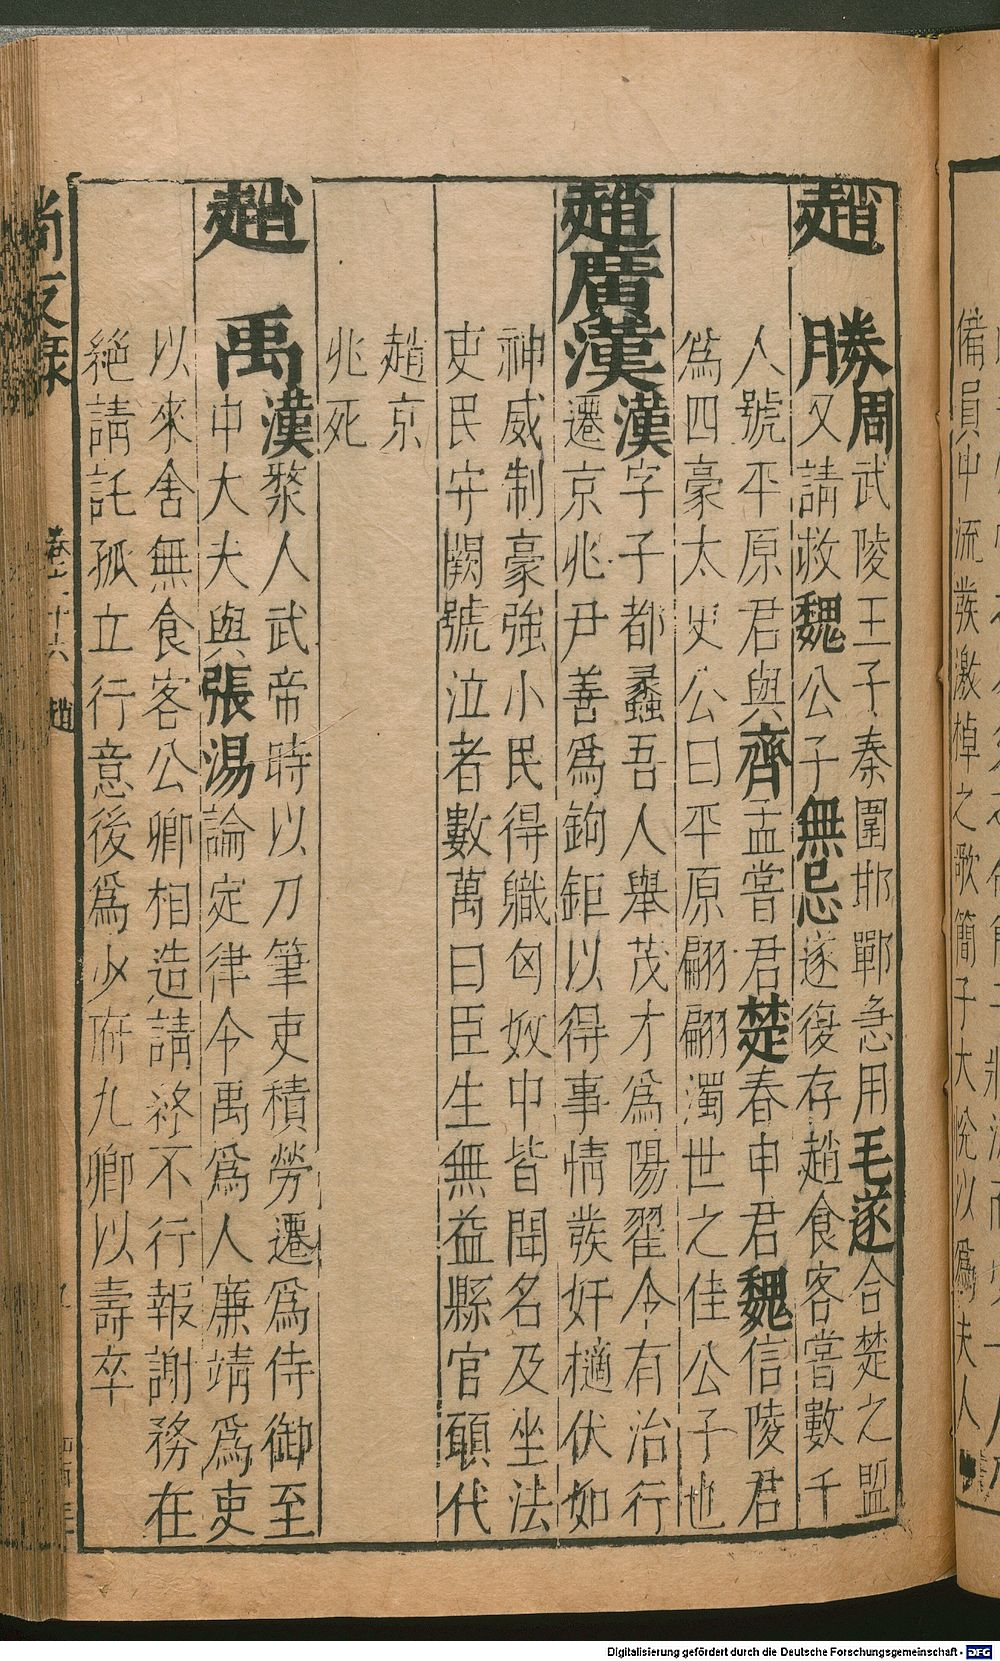 趙勝周武陵王子秦圍邯鄲急用毛遂合楚之盟
又請救魏公子無忌遂復存趙食客嘗數千
人號平原君與齊孟嘗君楚春申君魏信陵君
為四豪太史公曰平原翩翩濁世之佳公子也
趙廣漢漢字子都蠡吾人舉茂才為陽翟令有治行
遷京兆尹善為鉤鉅以得事情發奸擿伏如
神威制豪強小民得職匈奴中皆聞名及坐法
吏民守闕號泣者數萬曰臣生無益縣官願代
趙京
兆死
趙禹漢漦人武帝時以刀筆吏積勞遷為侍御至
中大夫與張湯論定律令禹為人廉靖為吏
以來舍無食客公卿相造請終不行報謝務在
絕請託孤立行意後為少府九卿以壽卒
尚友錄 卷之十六 趙
備員中流發激棹之歌簡子大悅以為夫人
Digitalisierung gefördert durch die Deutsche Forschungsgemeinschaft - DFG